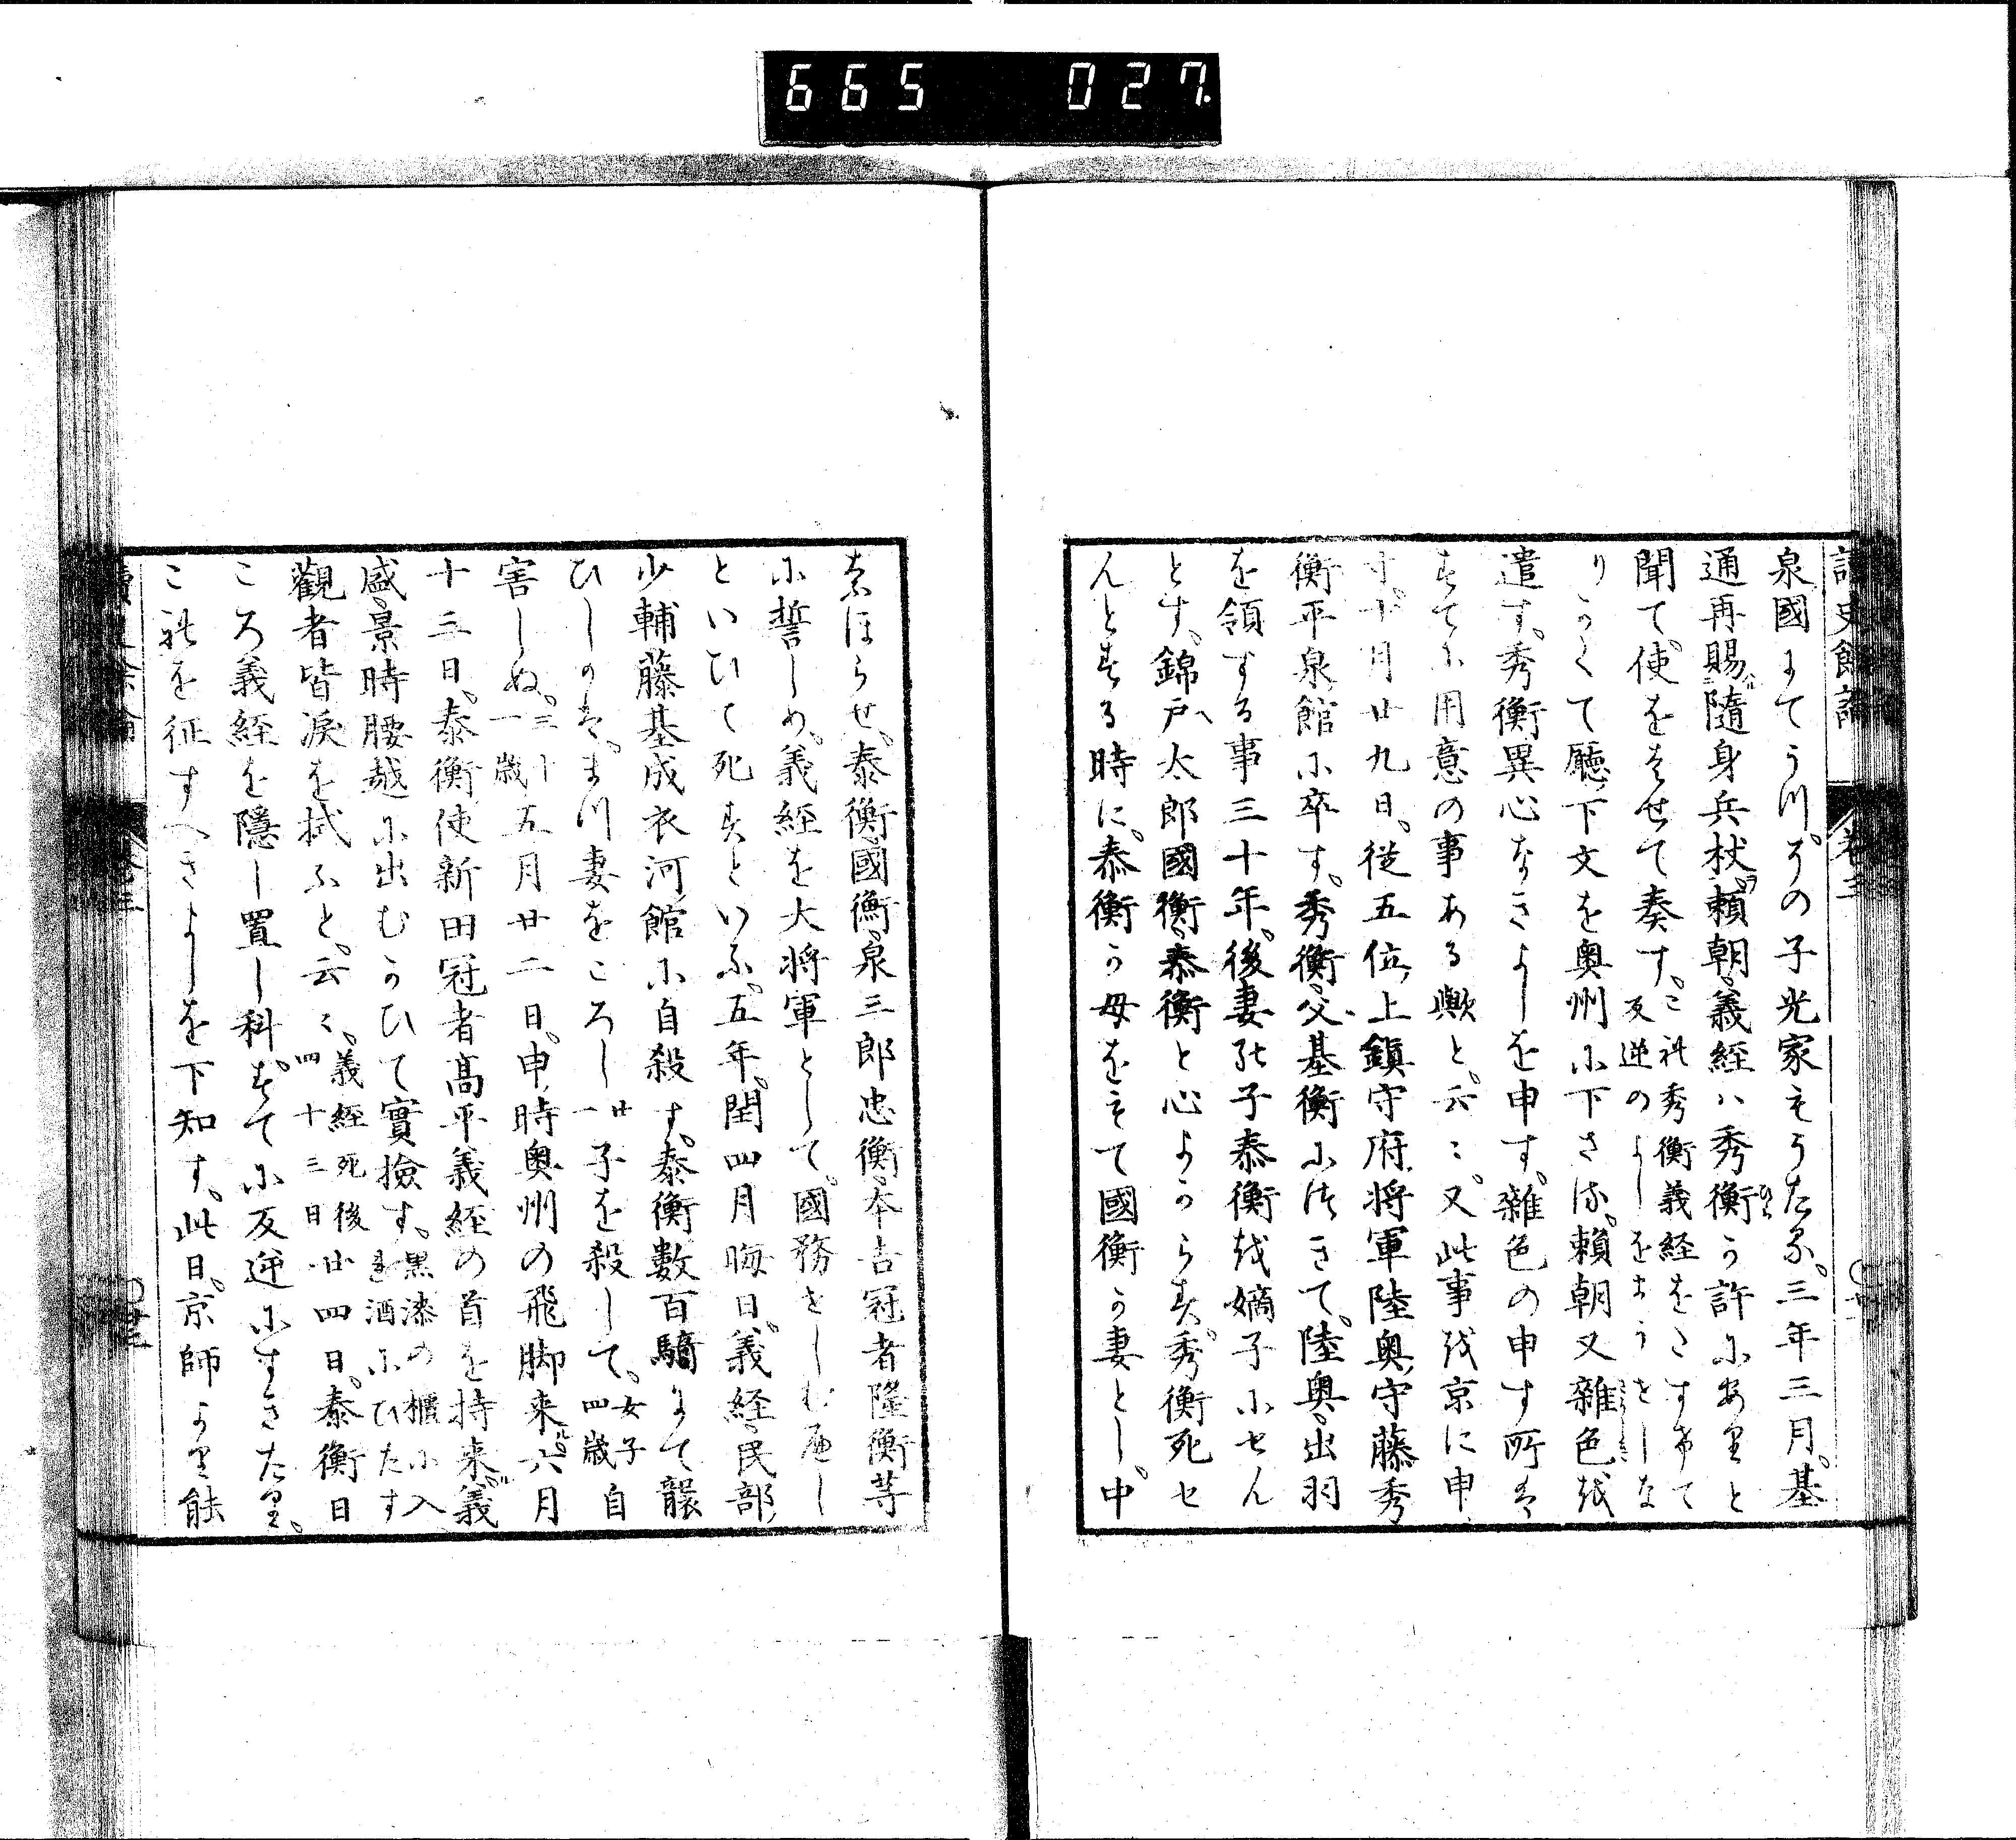 665 027.
讀史餘論 卷三
泉國にてうつ。その子光家もうたる。三年三月。基
通再賜隨身兵杖。頼朝。義経ハ秀衡か許にありと
聞て。使をまいらせて奏す。これ秀衡義経をたすけて
反逆のよしをまうせしな
りかくて廳下文を奥州に下さる。頼朝又雜色を
遣す。秀衡異心なきよしを申す。雜色の申す所は
すてに用意の事ある歟と云々。又此事を京に申
す。十月廿九日。従五位上鎮守府将軍陸奥守藤秀
衡平泉館に卒す。秀衡父基衡につきて。陸奥出羽
を領する事三十年。後妻の子泰衡を嫡子にせん
とす。錦戸太郎國衡泰衡と心よからす。秀衡死せ
んとする時に。泰衡か母をもて國衡か妻とし。中
なほらせ。泰衡國衡泉三郎忠衡本吉冠者隆衡等
に誓しめ。義経を大将軍として。國務せしむへし
といひて死すといふ。五年。閏四月晦日。義経民部
少輔藤基成衣河館に自殺す。泰衡數百騎にて襲
ひしかは。まつ妻をころし廿一子を殺して。女子四歳自
害しぬ。三十一歳五月廿二日。申時奥州の飛脚来。六月
十三日。泰衡使新田冠者高平義経の首を持来。義
盛景時腰越に出むかひて實撿す。黒漆の櫃に入美酒にひたす
觀者皆涙を拭ふと云々。義経死後四十三日廿四日。泰衡日
ころ義経を隠し置し科。すてに反逆にすきたり。
これを征すへきよしを下知す。此日。京師より能
讀史餘論 卷三